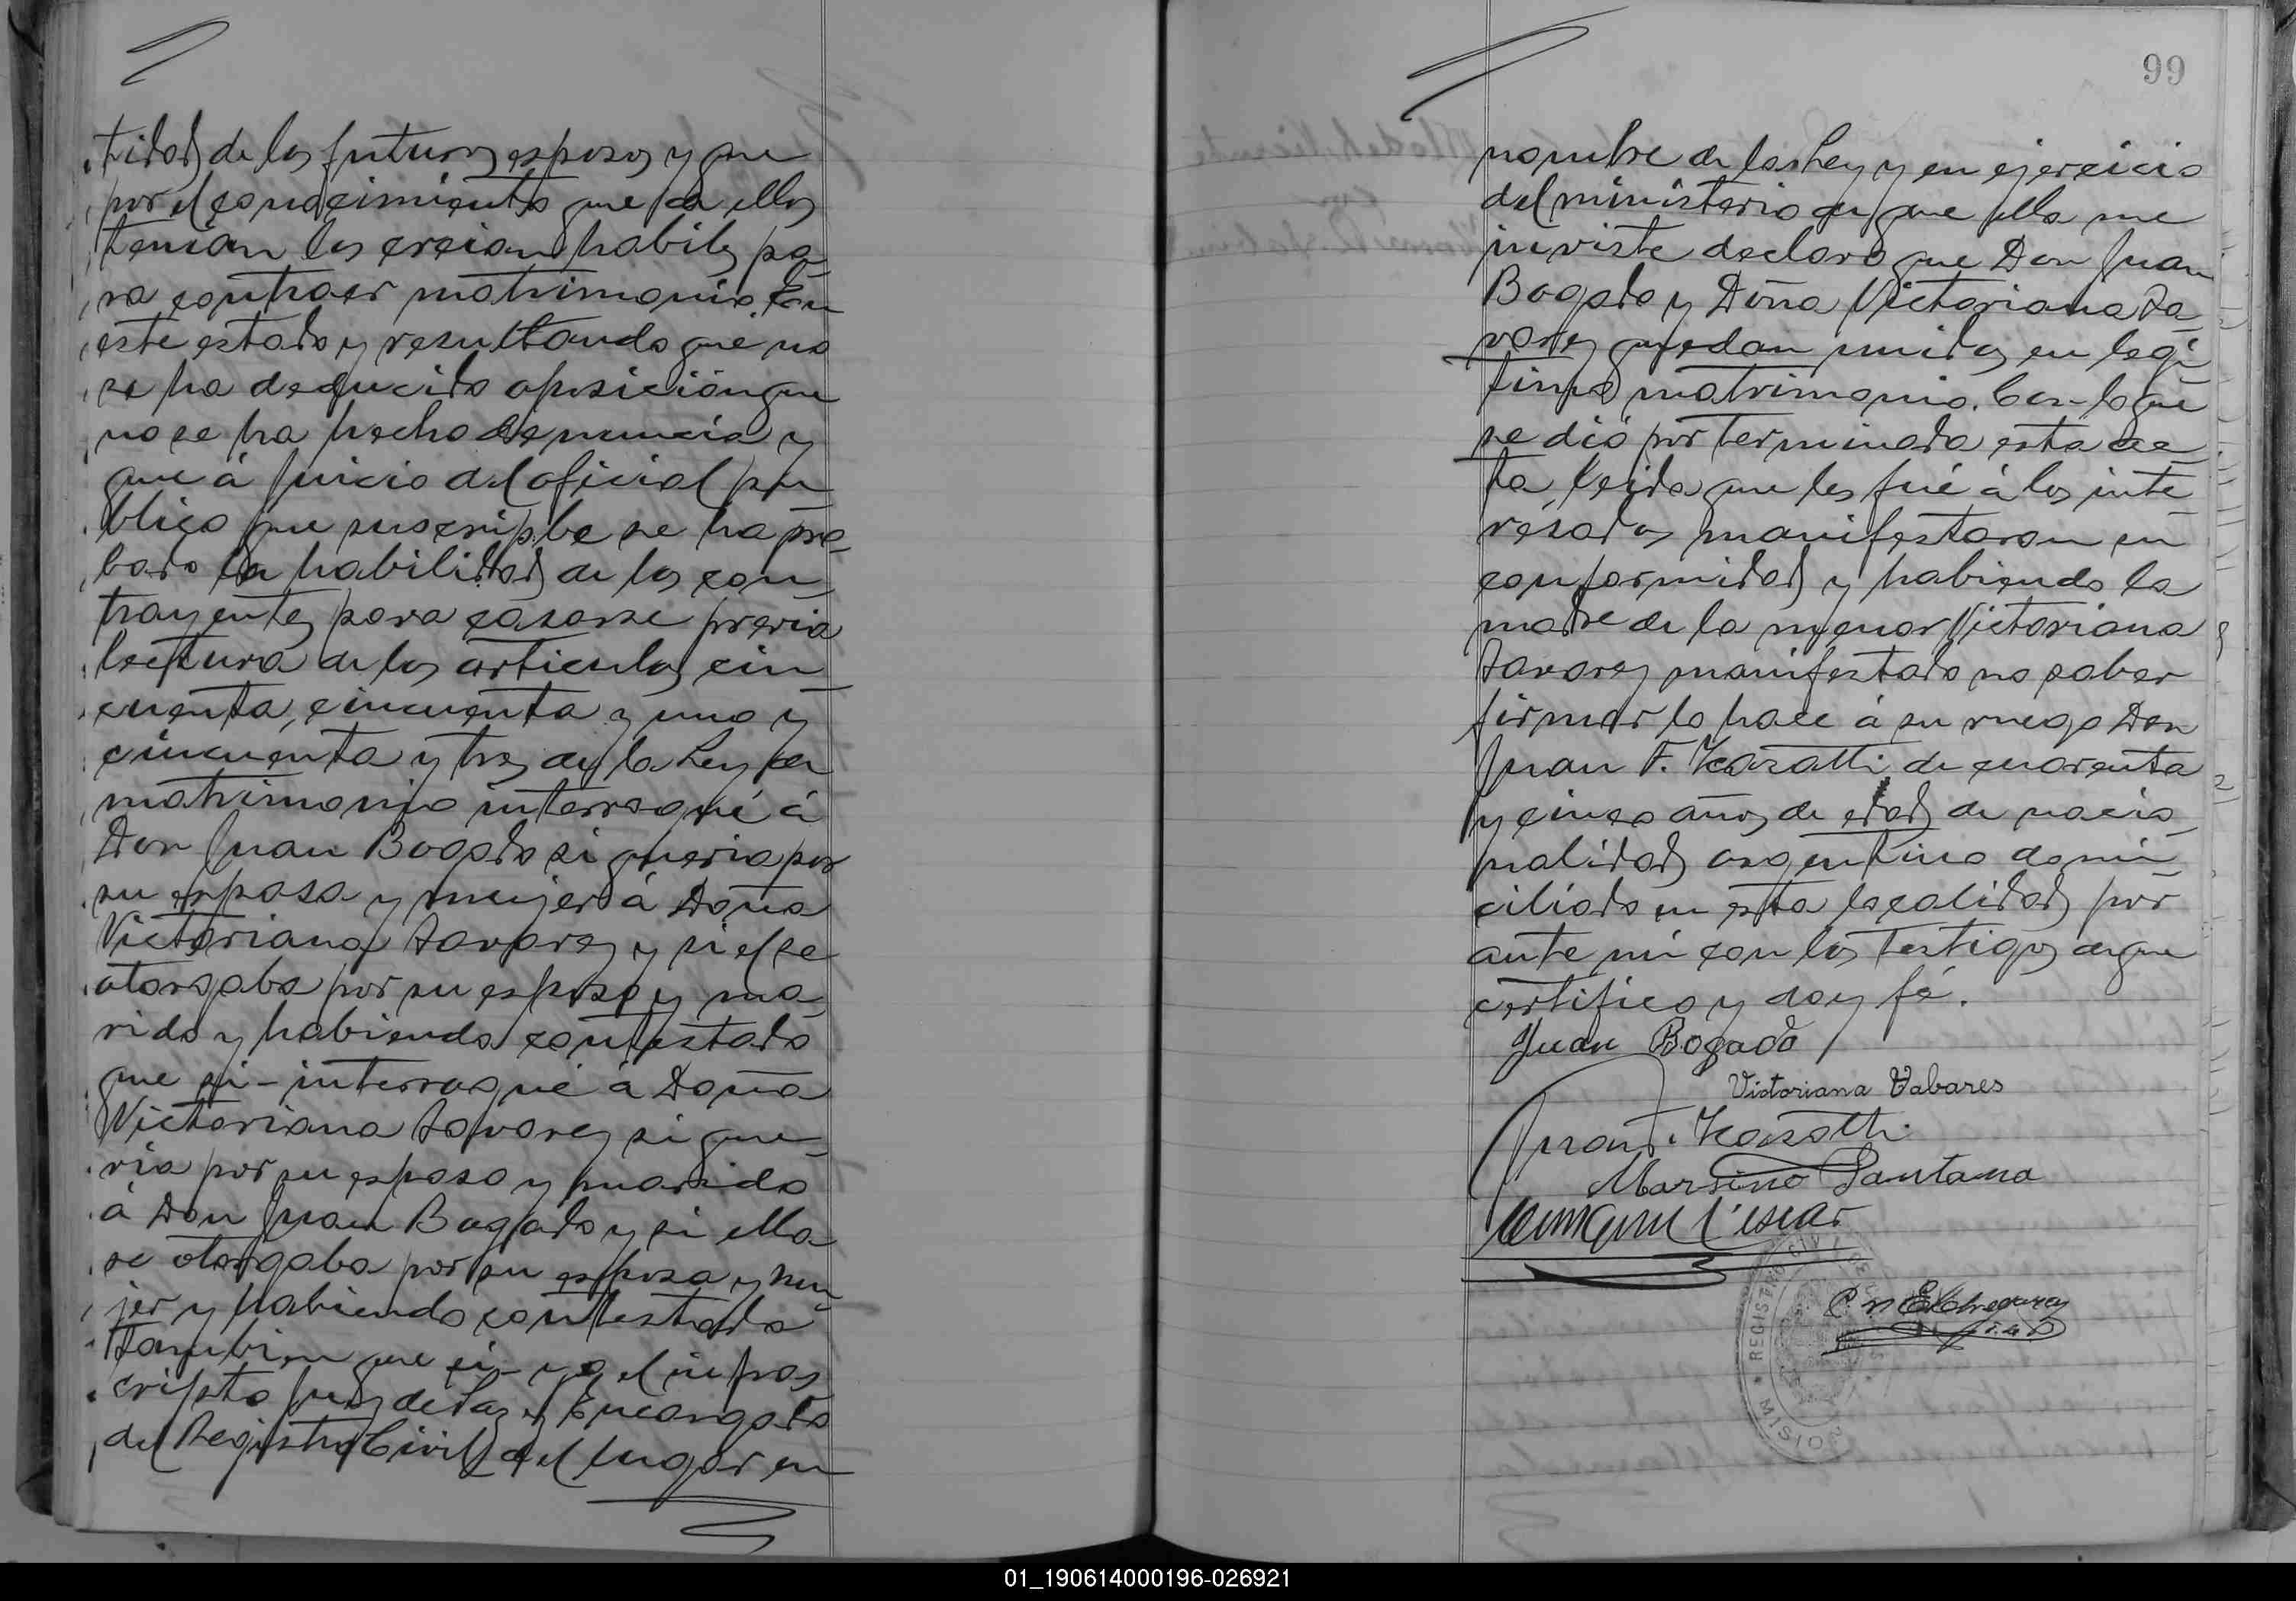 tidad de los futuros esposos y que
por el conocimiento que de ellos
tenian los creian habiles pa-
ra contraer matrimonio. En
este estado y resultando que no
se ha deducido oposición que
no se ha hecho denuncia y
que á juicio del oficial pu-
blico que suscripbe se ha pro-
bado la habilidad de los con-
trayentes para casarse previa
lectura de los articulos cin-
cuenta, cincuenta y uno y
cincuenta y tres de la Ley de
matrimonio interrogué á
Don Juan Bogado si queria por
su esposa y mujer á Doña
Victoriana Tavares y si el se
otorgaba por su esposo y ma-
rido y habiendo contestado
que si - interrogué á Doña
Victoriana Tavares si que-
ria por su esposo y marido
á Don Juan Bogado y si ella
se otorgaba por su esposa y mu-
jer y habiendo contestado
tambien que si - yo el infras-
cripto Juez de Paz y Encargado
del Registro Civil del lugar en
99
nombre de la Ley y en ejercicio
del ministerio de que ella me
inviste declaro que Don Juan
Bogado y Doña Victoriana Ta-
vares quedan unidos en legí-
timo matrimonio. Con lo que
se dió por terminada esta ac-
ta, leida que les fué á los inte-
resados manifestaron su
conformidad y habiendo la
madre de la menor Victoriana
Tavares manifestado no saber
firmar lo hace á su ruego Don
Juan F. de cuarenta
y cinco años de edad de nacio-
nalidad argentino domi-
ciliado en esta localidad por
ante mí con los testigos de que
certifico y doy fé.
Juan Bogado
Victoriana Tabares
Juan F.
Marsimo Santana
REGISTRO CIVIL
MISIO
01_190614000196-026921